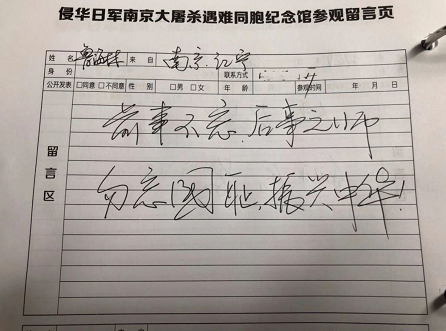 侵华日军南京大屠杀遇难同胞纪念馆参观留言页
姓名 来自 南京.江宁
身份 联系方式
公开发表 □同意 □不同意 性别 □男 □女 年龄 参观时间 年 月 日
留言区
前事不忘.后事之师
勿忘国耻.振兴中华!